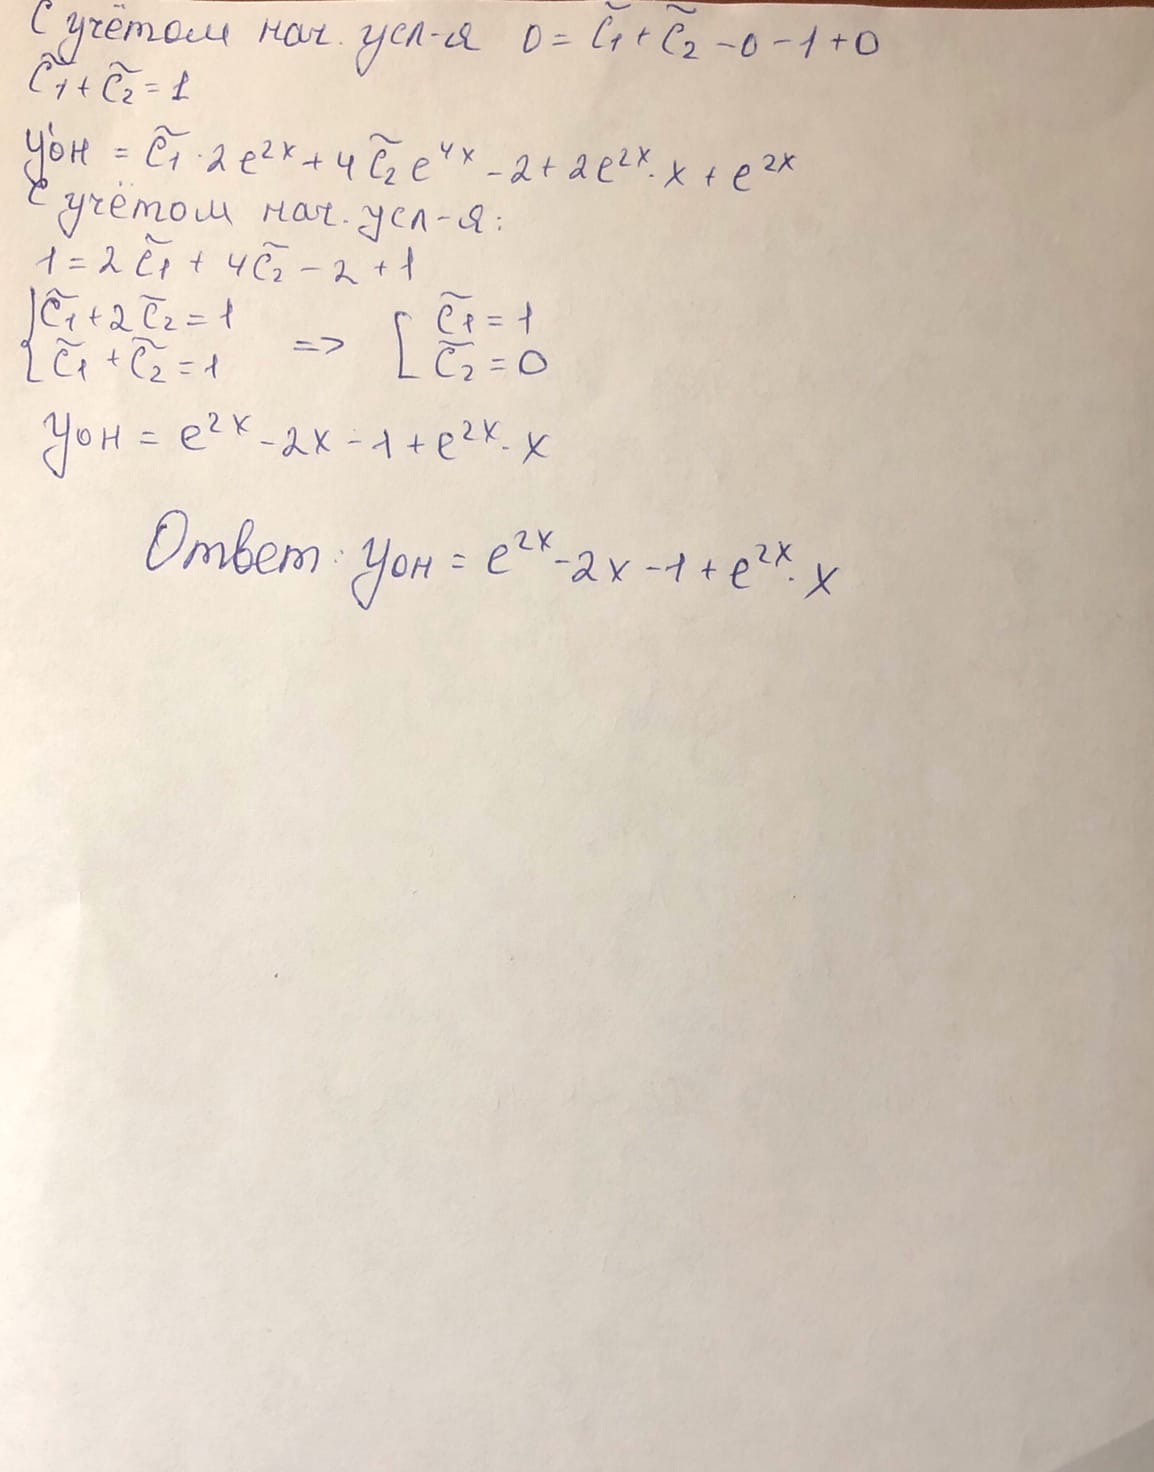 С учётом нач. усл-я 0 = C̃₁ + C̃₂ - 0 - 1 + 0
C̃₁ + C̃₂ = 1
y'он = C̃₁ · 2e²ˣ + 4C̃₂e⁴ˣ - 2 + 2e²ˣ · x + e²ˣ
С учётом нач. усл-я:
1 = 2C̃₁ + 4C̃₂ - 2 + 1
{ C̃₁ + 2C̃₂ = 1 => [ C̃₁ = 1
C̃₁ + C̃₂ = 1 C̃₂ = 0
yон = e²ˣ - 2x - 1 + e²ˣ · x
Ответ: yон = e²ˣ - 2x - 1 + e²ˣ · x